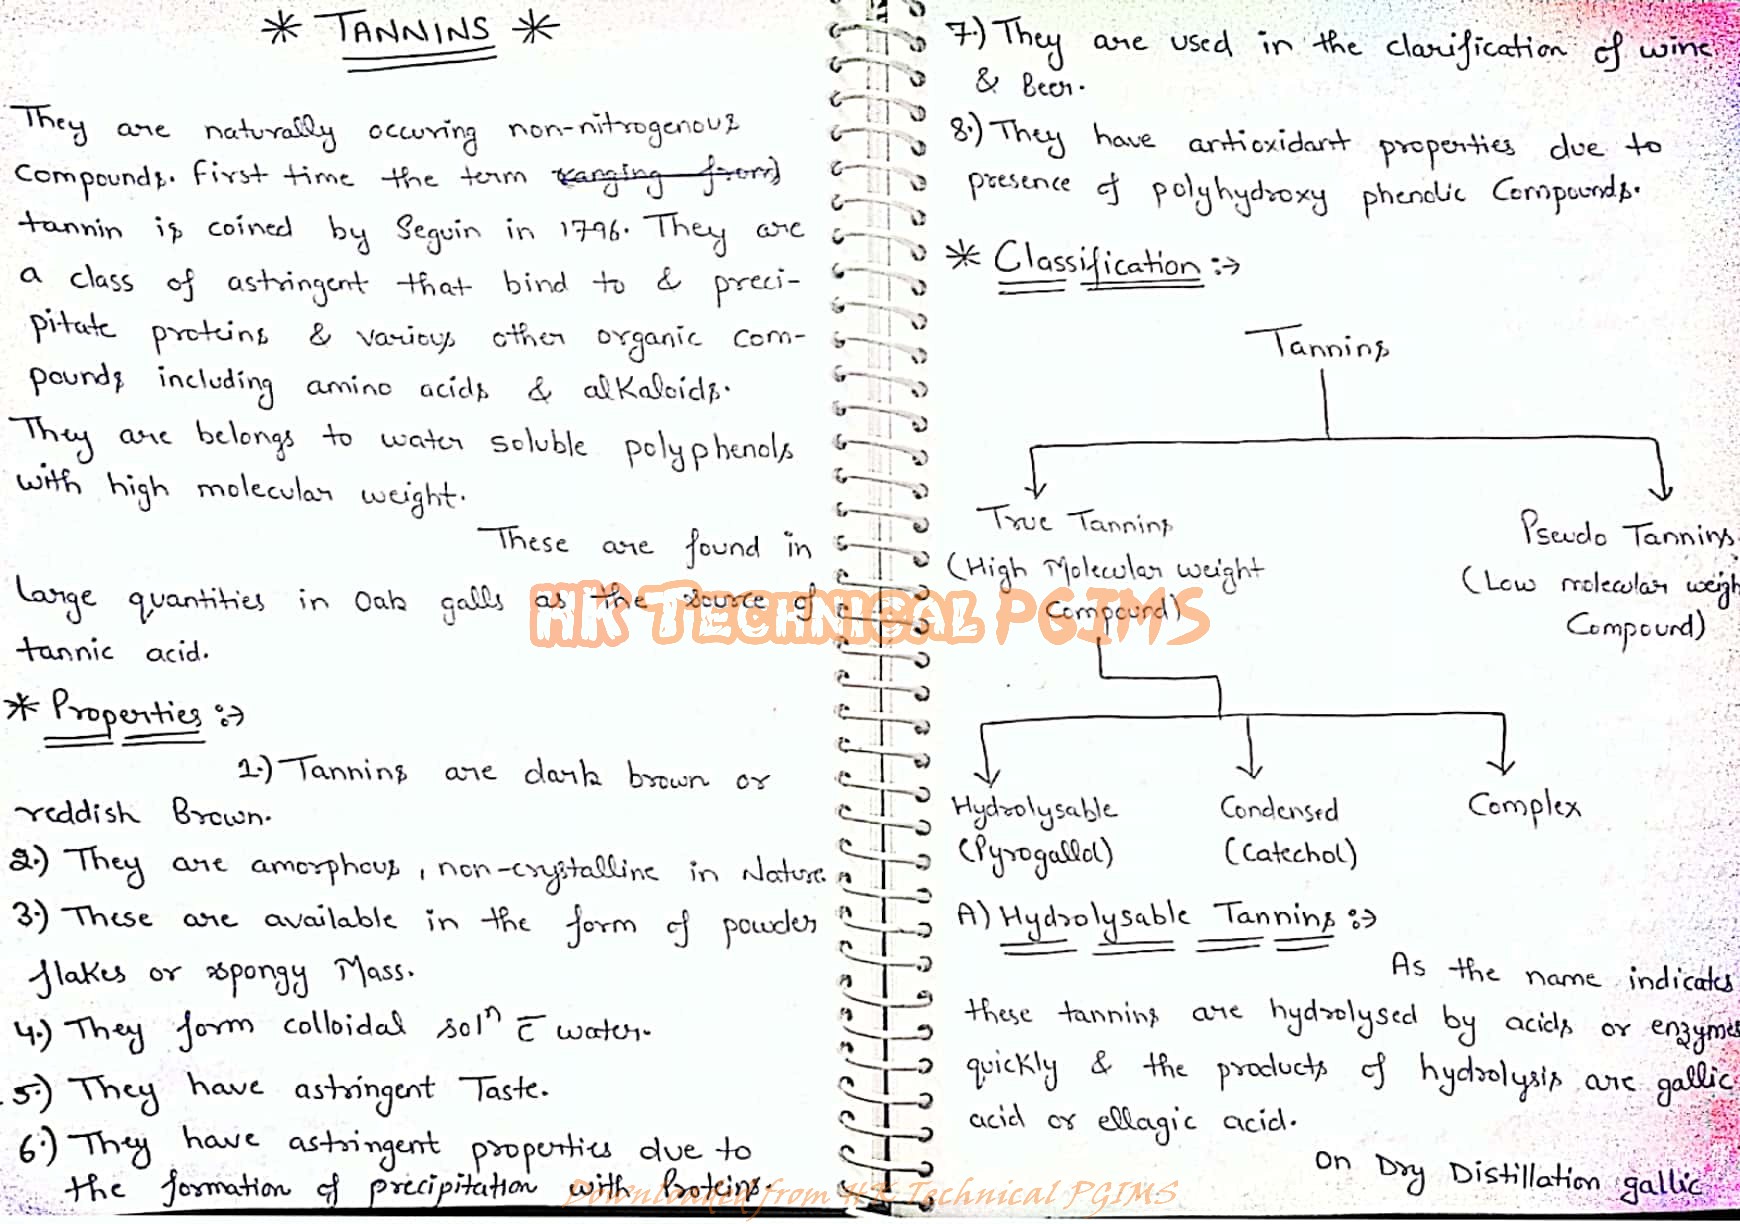 * TANNINS *
They are naturally occuring non-nitrogenous
compounds. First time the term ranging from
tannin is coined by Seguin in 1796. They are
a class of astringent that bind to & preci-
pitate proteins & various other organic com-
pounds including amino acids & alkaloids.
They are belongs to water soluble polyphenols
with high molecular weight.
These are found in
large quantities in Oak galls as the source of
tannic acid.
* Properties :→
1.) Tannins are dark brown or
reddish Brown.
2.) They are amorphous, non-crystalline in Nature.
3.) These are available in the form of powder
flakes or spongy Mass.
4.) They form colloidal solⁿ c̅ water.
5.) They have astringent Taste.
6.) They have astringent properties due to
the formation of precipitation with Proteins.
7.) They are used in the clarification of wine
& Beer.
8.) They have antioxidant properties due to
presence of polyhydroxy phenolic Compounds.
* Classification :→
Tannins
True Tannins
(High Molecular weight
Compound)
Pseudo Tannins
(Low molecular weigh
Compound)
Hydrolysable
(Pyrogallol)
Condensed
(Catechol)
Complex
A) Hydrolysable Tannins :→
As the name indicates
these tannins are hydrolysed by acids or enzymes
quickly & the products of hydrolysis are gallic
acid or ellagic acid.
On Dry Distillation gallic
HK TECHNICAL PGIMS
Downloaded from HK Technical PGIMS